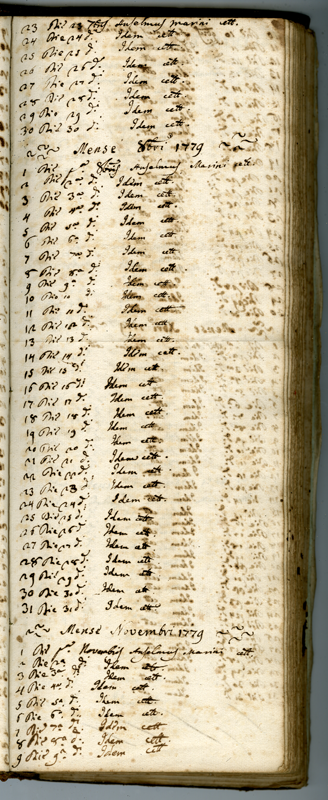 23 Die 23 7bris Anselmus Marini cett.
24 Die 24 d.ⁱ Idem cett.
25 Die 25 d.ⁱ Idem cett.
26 Die 26 d.ⁱ Idem cett.
27 Die 27 d.ⁱ Idem cett.
28 Die 28 d.ⁱ Idem cett.
29 Die 29 d.ⁱ Idem cett.
30 Die 30 d.ⁱ Idem cett.
Mense 8bri 1779
1 Die pᵃ 8bris Anselmus Marini cett.
2 Die 2ᵃ d.ⁱ Idem cett.
3 Die 3ᵃ d.ⁱ Idem cett.
4 Die 4ᵃ d.ⁱ Idem cett.
5 Die 5ᵃ d.ⁱ Idem cett.
6 Die 6ᵃ d.ⁱ Idem cett.
7 Die 7ᵃ d.ⁱ Idem cett.
8 Die 8ᵃ d.ⁱ Idem cett.
9 Die 9ᵃ d.ⁱ Idem cett.
10 Die 10 d.ⁱ Idem cett.
11 Die 11 d.ⁱ Idem cett.
12 Die 12 d.ⁱ Idem cett.
13 Die 13 d.ⁱ Idem cett.
14 Die 14 d.ⁱ Idem cett.
15 Die 15 d.ⁱ Idem cett.
16 Die 16 d.ⁱ Idem cett.
17 Die 17 d.ⁱ Idem cett.
18 Die 18 d.ⁱ Idem cett.
19 Die 19 d.ⁱ Idem cett.
20 Die 20 d.ⁱ Idem cett.
21 Die 21 d.ⁱ Idem cett.
22 Die 22 d.ⁱ Idem cett.
23 Die 23 d.ⁱ Idem cett.
24 Die 24 d.ⁱ Idem cett.
25 Die 25 d.ⁱ Idem cett.
26 Die 26 d.ⁱ Idem cett.
27 Die 27 d.ⁱ Idem cett.
28 Die 28 d.ⁱ Idem cett.
29 Die 29 d.ⁱ Idem cett.
30 Die 30 d.ⁱ Idem cett.
31 Die 31 d.ⁱ Idem cett.
Mense Novembri 1779
1 Die pᵃ Novembris Anselmus Marini cett.
2 Die 2ᵃ d.ⁱ Idem cett.
3 Die 3ᵃ d.ⁱ Idem cett.
4 Die 4ᵃ d.ⁱ Idem cett.
5 Die 5ᵃ d.ⁱ Idem cett.
6 Die 6ᵃ d.ⁱ Idem cett.
7 Die 7ᵃ d.ⁱ Idem cett.
8 Die 8ᵃ d.ⁱ Idem cett.
9 Die 9ᵃ d.ⁱ Idem cett.